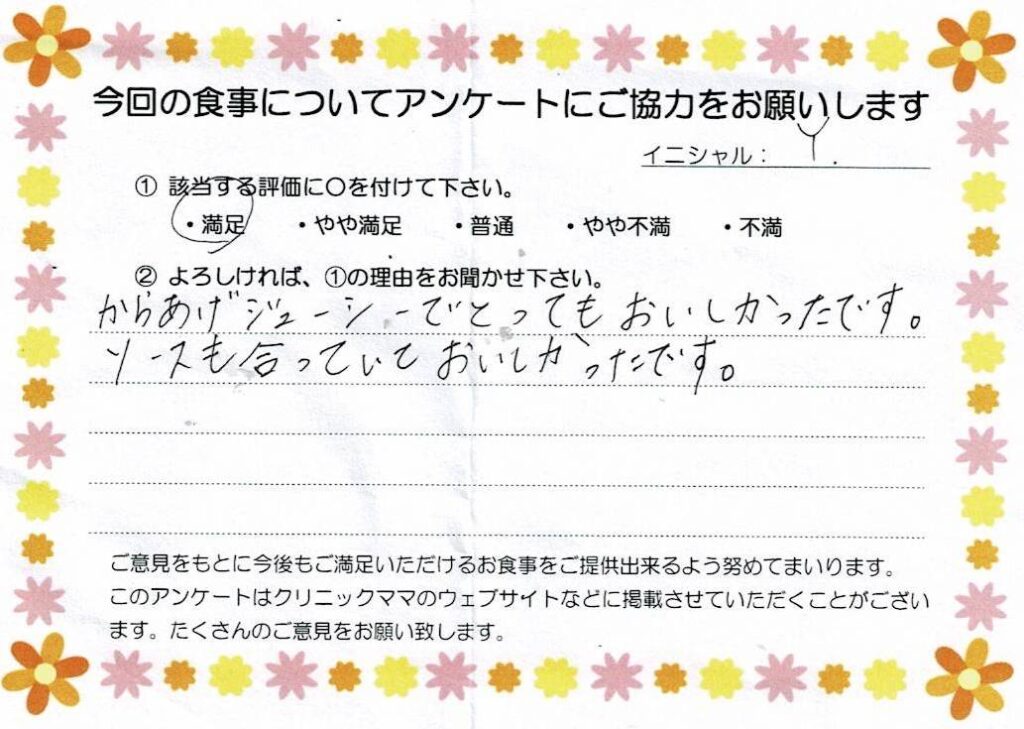 今回の食事についてアンケートにご協力をお願いします
イニシャル： Y.
① 該当する評価に〇を付けて下さい。
・満足 ・やや満足 ・普通 ・やや不満 ・不満
② よろしければ、①の理由をお聞かせ下さい。
からあげジューシーでとってもおいしかったです。
ソースも合っていておいしかったです。
ご意見をもとに今後もご満足いただけるお食事をご提供出来るよう努めてまいります。
このアンケートはクリニックママのウェブサイトなどに掲載させていただくことがござい
ます。たくさんのご意見をお願い致します。